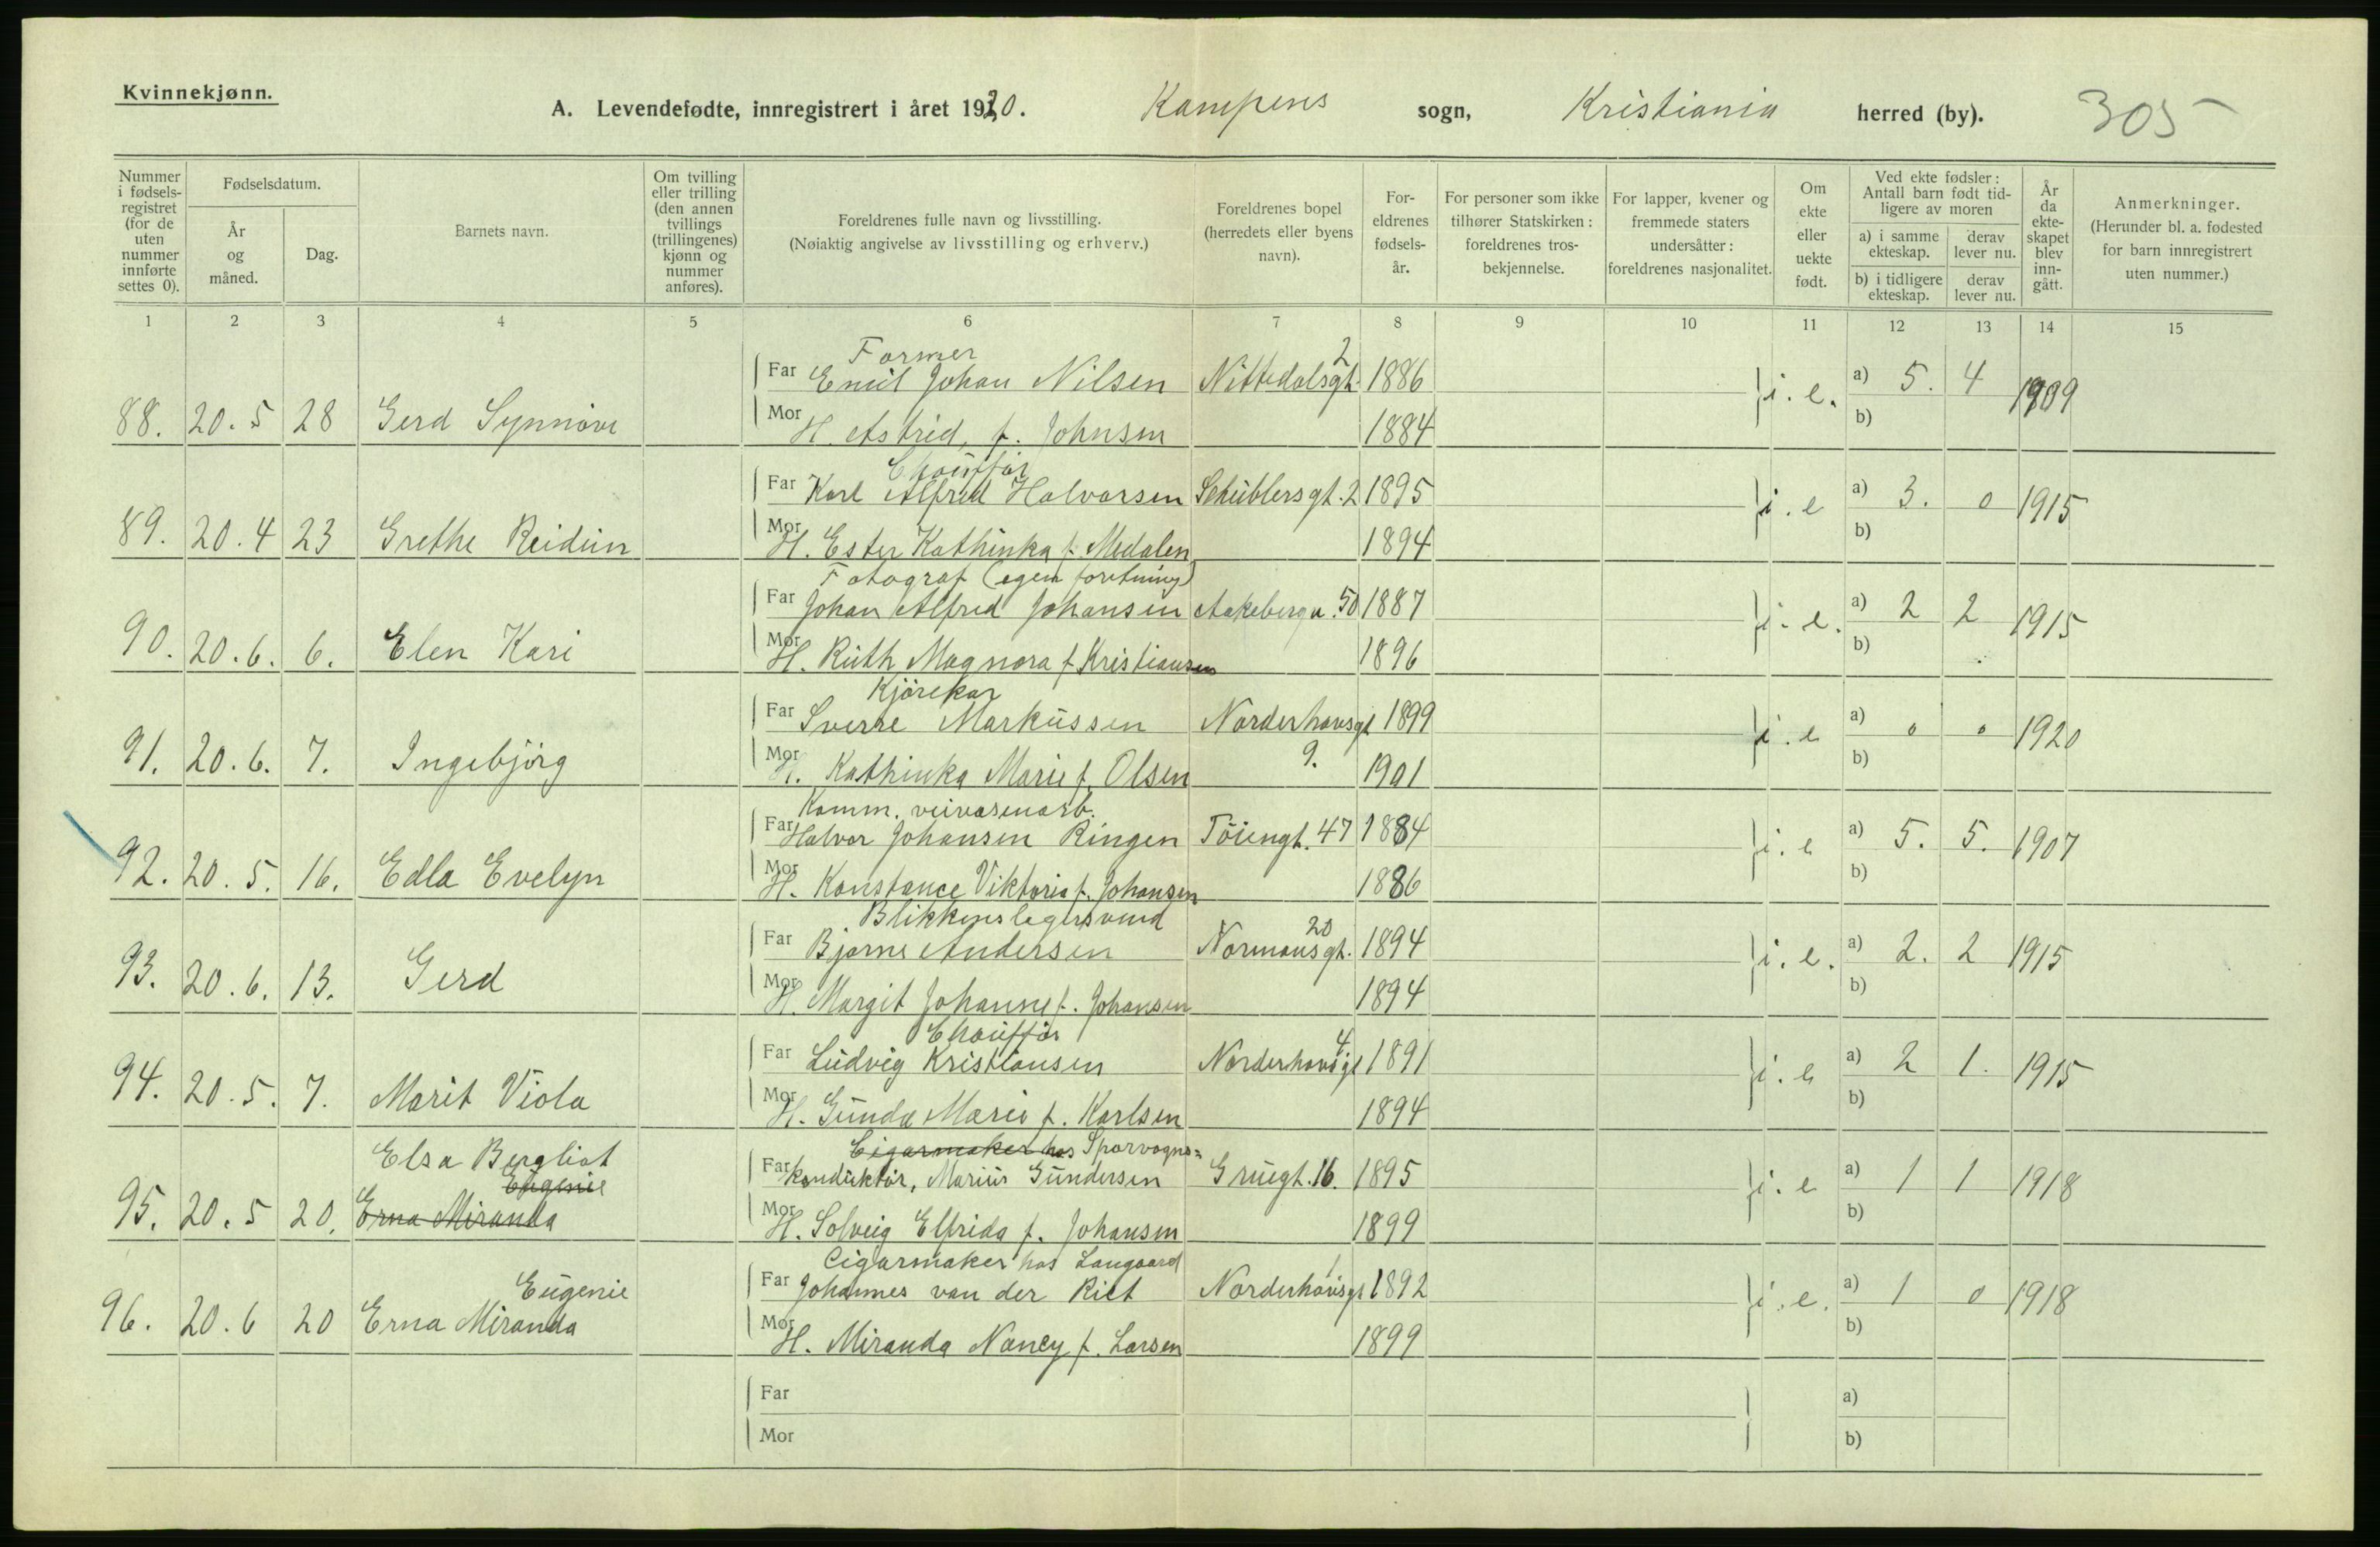 Kvinnekjønn.
A. Levendefødte, innregistrert i året 1920. Kampens sogn, Kristiania herred (by). 305
Nummer i fødsels-registret (for de uten nummer innførte settes 0).
Fødselsdatum.
År og måned.
Dag.
Barnets navn.
Om tvilling eller trilling (den annen tvillings (trillingenes) kjønn og nummer anføres).
Foreldrenes fulle navn og livsstilling.
(Nøiaktig angivelse av livsstilling og erhverv.)
Foreldrenes bopel (herredets eller byens navn).
For-eldrenes fødsels-år.
For personer som ikke tilhører Statskirken: foreldrenes tros-bekjennelse.
For lapper, kvener og fremmede staters undersåtter: foreldrenes nasjonalitet.
Om ekte eller uekte født.
Ved ekte fødsler: Antall barn født tid-ligere av moren
a) i samme ekteskap.
derav lever nu.
b) i tidligere ekteskap.
derav lever nu.
År da ekte-skapet blev inn-gått.
Anmerkninger.
(Herunder bl. a. fødested for barn innregistrert uten nummer.)
1 2 3 4 5 6 7 8 9 10 11 12 13 14 15
Former 2
Far Emil Johan Nilsen Nittedalsgt. 1886 i. e. a) 5. 4 1909
88. 20. 5 28 Gerd Synnøve
Mor H. Astrid, f. Johnsen 1884 b)
Chauffør
Far Karl Alfred Halvorsen Schüblersgt. 2 1895 i. e a) 3. 0 1915
89. 20. 4 23 Grethe Reidun
Mor H. Ester Kathinka f. Medalen 1894 b)
Fotograf (egen foretning)
Far Johan Alfred Johansen Aakebergv. 50 1887 i. e. a) 2 2 1915
90. 20. 6. 6. Elen Kari
Mor H. Ruth Magnora f. Kristiansen 1896 b)
Kjørekar
Far Sverre Markussen Norderhovsgt 1899 i. e a) 0 0 1920
91. 20. 6. 7. Ingebjørg
Mor H. Kathinka Marie f. Olsen 9. 1901 b)
Komm. veivæsenarb.
Far Halvor Johansen Ringen Tøiengt. 47 1884 i. e a) 5. 5. 1907
92. 20. 5. 16. Edla Evelyn
Mor H. Konstance Viktoria f. Johansen 1886 b)
Blikkenslagersvend 20
Far Bjarne Andersen Normansgt. 1894 i. e. a) 2. 2 1915
93. 20. 6. 13. Gerd
Mor H. Margit Johanne f. Johansen 1894 b)
Chauffør 4
Far Ludvig Kristiansen Norderhovsgt 1891 i. e a) 2 1. 1915
94. 20. 5. 7. Marit Viola
Mor H. Gunda Marie f. Karlsen 1894 b)
Elsa Bergliot Cigarmaker hos Sporvogns=
Eugenie
Far konduktør, Marius Gundersen Gruegt. 16. 1895 i. e a) 1 1 1918
95. 20. 5 20. Erna Miranda
Mor H. Solveig Elfrida f. Johansen 1899 b)
Cigarmaker hos Langaard 1
Eugenie Far Johannes van der Riet Norderhovsgt 1892 i. e. a) 1 0 1918
96. 20. 6 20 Erna Miranda
Mor H. Miranda Nancy f. Larsen 1899 b)
Far a)
Mor b)